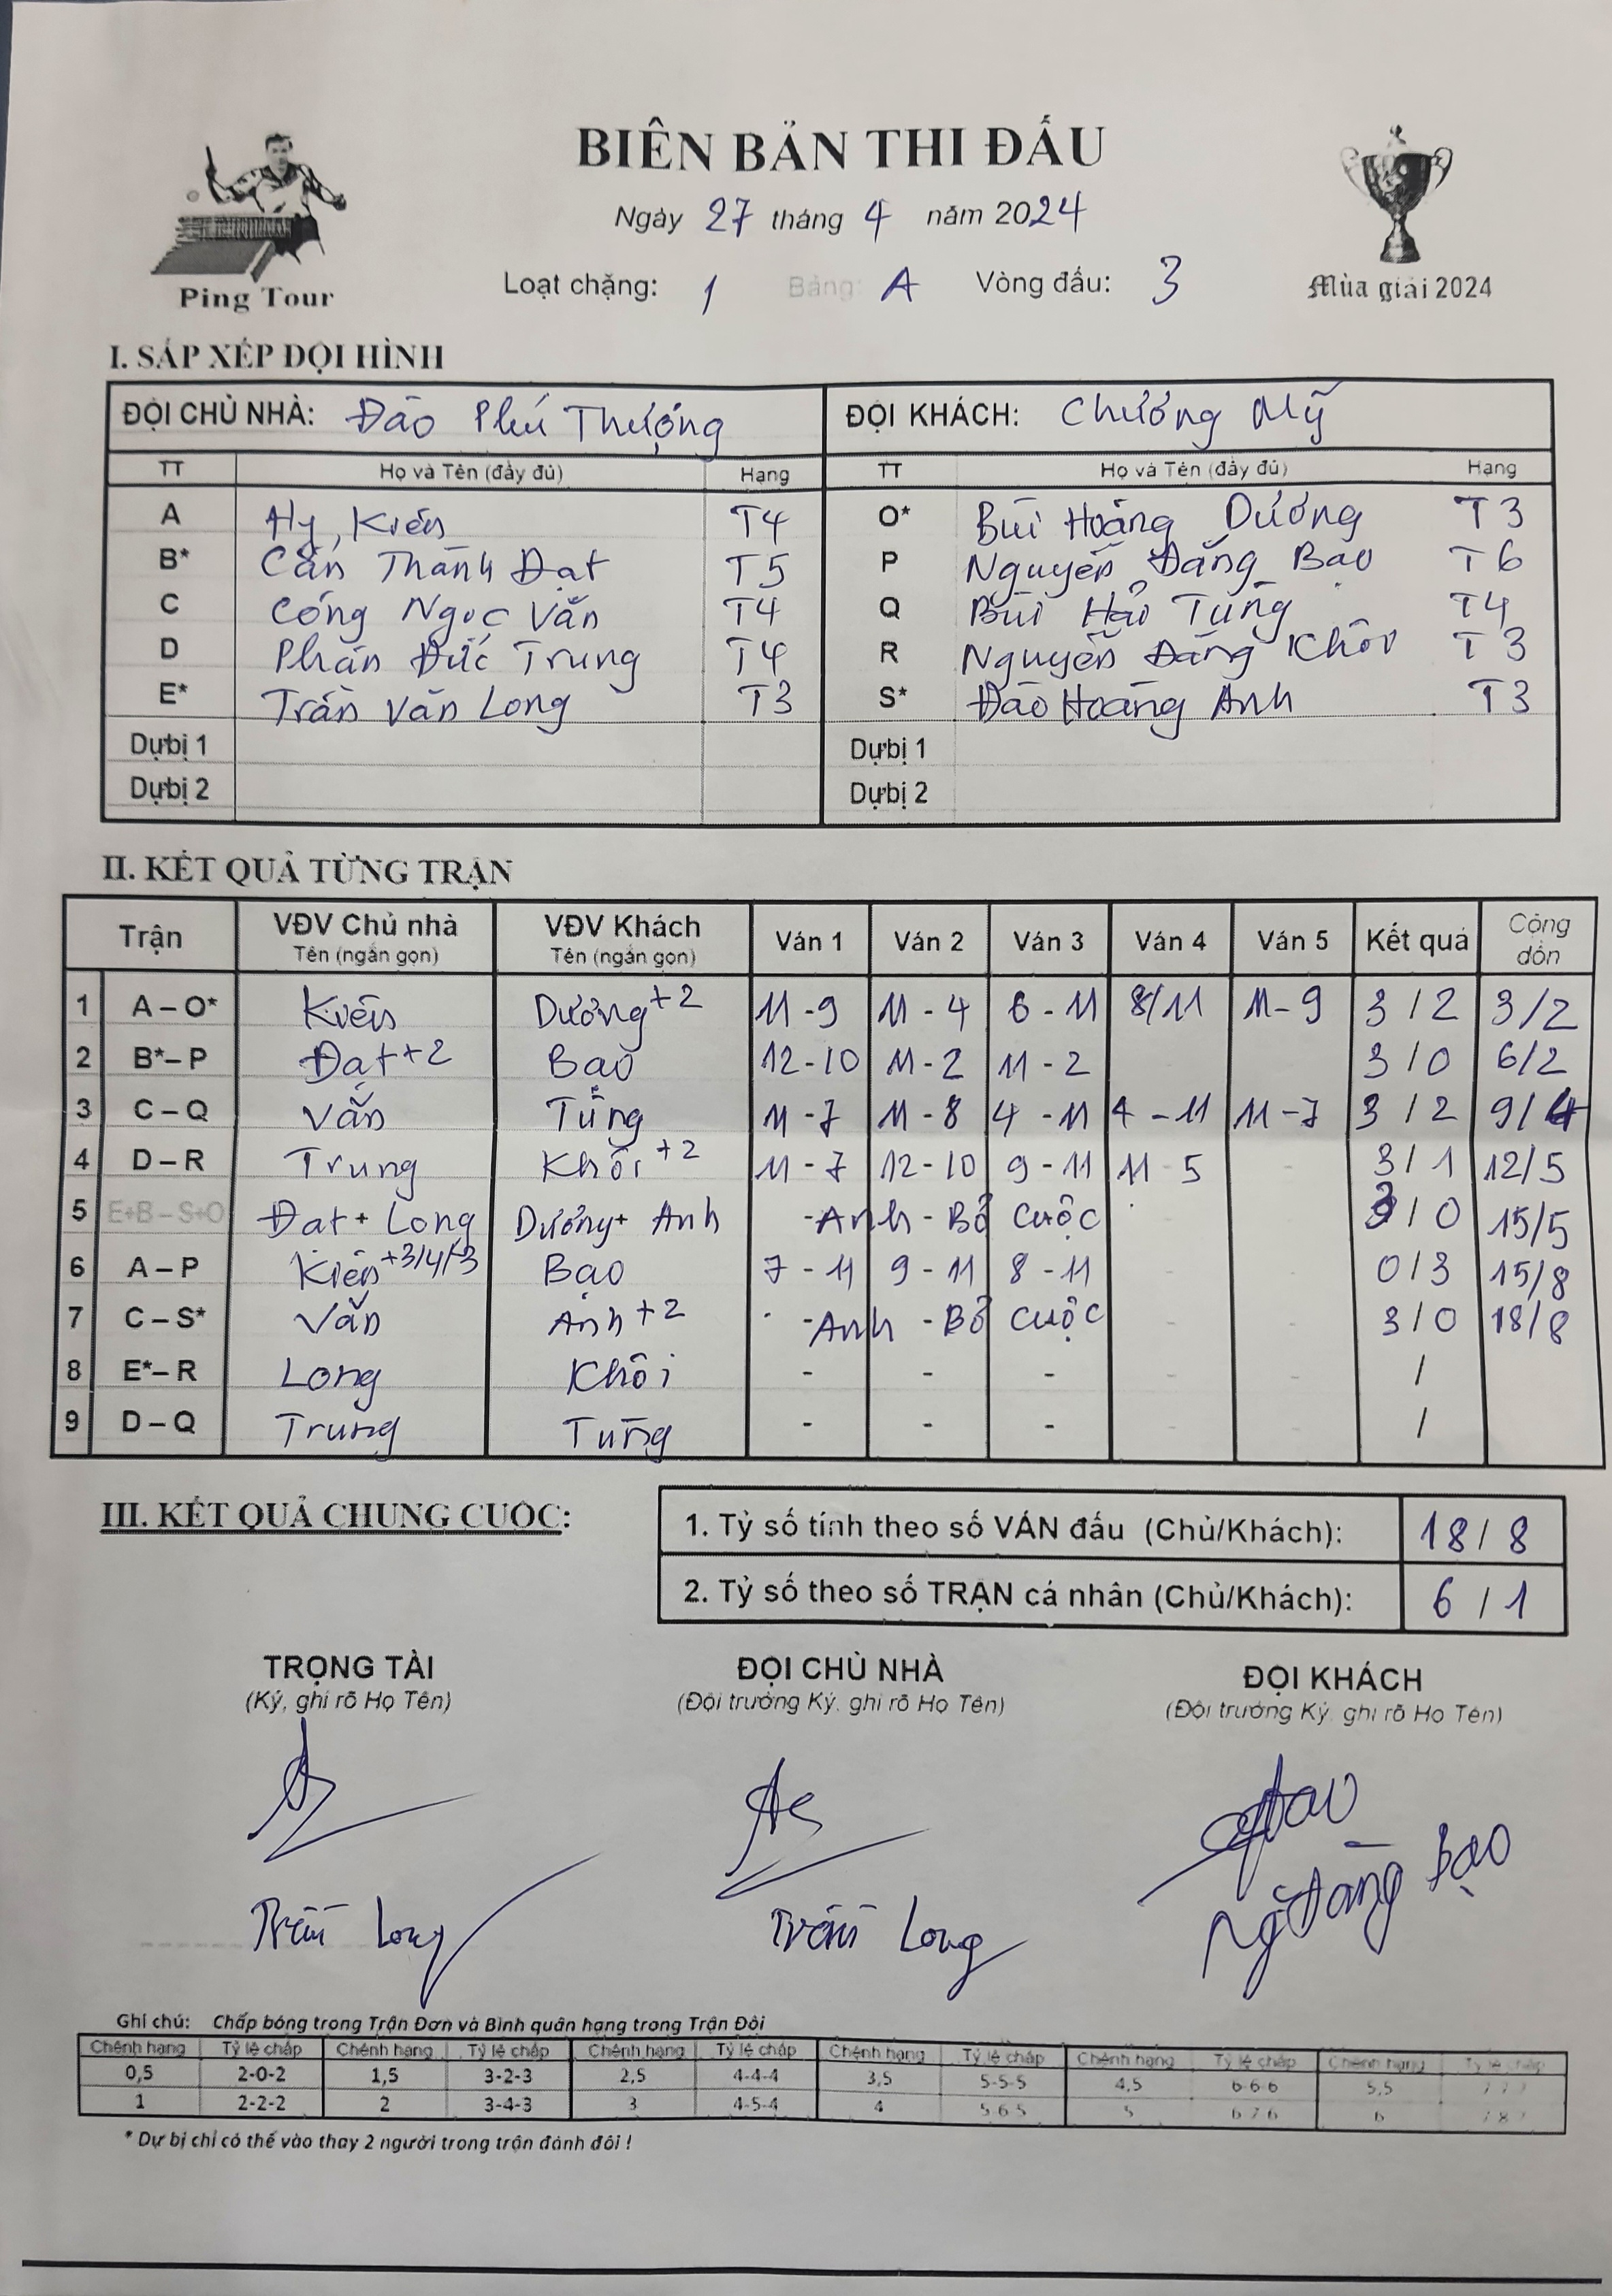 BIÊN BẢN THI ĐẤU
Ngày 27 tháng 4 năm 2024
Ping Tour
Loạt chặng: 1 Bảng: A Vòng đấu: 3
Mùa giải 2024
I. SẮP XẾP ĐỘI HÌNH
ĐỘI CHỦ NHÀ: Đào Phú Thượng ĐỘI KHÁCH: Chương Mỹ
TT Họ và Tên (đầy đủ) Hạng TT Họ và Tên (đầy đủ) Hạng
A Hy Kiên T4 O* Bùi Hoàng Dương T3
B* Cấn Thành Đạt T5 P Nguyễn Đăng Bảo T6
C Công Ngọc Văn T4 Q Bùi Tùng T4
D Phan Đức Trung T4 R Nguyễn Đăng Khôi T3
E* Trần Văn Long T3 S* Đào Hoàng Anh T3
Dự bị 1 Dự bị 1
Dự bị 2 Dự bị 2
II. KẾT QUẢ TỪNG TRẬN
Trận VĐV Chủ nhà VĐV Khách Ván 1 Ván 2 Ván 3 Ván 4 Ván 5 Kết quả Cộng dồn
Tên (ngắn gọn) Tên (ngắn gọn)
1 A – O* Kiên Dương+2 11-9 11-4 6-11 8/11 11-9 3/2 3/2
2 B* – P Đạt+2 Bảo 12-10 11-2 11-2 - - 3/0 6/2
3 C – Q Văn Tùng 11-7 11-8 4-11 4-11 11-7 3/2 9/4
4 D – R Trung Khôi+2 11-7 12-10 9-11 11-5 - 3/1 12/5
5 E+B – S+O Đạt+Long Dương+Anh - Anh - Bỏ cuộc 3/0 15/5
6 A – P Kiên+3/4/3 Bảo 7-11 9-11 8-11 - - 0/3 15/8
7 C – S* Văn Anh+2 - Anh - Bỏ cuộc - - 3/0 18/8
8 E* – R Long Khôi - - - - - /
9 D – Q Trung Tùng - - - - - /
III. KẾT QUẢ CHUNG CUỘC:
1. Tỷ số tính theo số VÁN đấu (Chủ/Khách): 18/8
2. Tỷ số theo số TRẬN cá nhân (Chủ/Khách): 6/1
TRỌNG TÀI ĐỘI CHỦ NHÀ ĐỘI KHÁCH
(Ký, ghi rõ Họ Tên) (Đội trưởng Ký, ghi rõ Họ Tên) (Đội trưởng Ký, ghi rõ Họ Tên)
Trần Long Trần Long Ng Đăng Bảo
Ghi chú: Chấp bóng trong Trận Đơn và Bình quân hạng trong Trận Đôi
Chênh hạng Tỷ lệ chấp Chênh hạng Tỷ lệ chấp Chênh hạng Tỷ lệ chấp Chênh hạng Tỷ lệ chấp Chênh hạng Tỷ lệ chấp Chênh hạng Tỷ lệ chấp
0,5 2-0-2 1,5 3-2-3 2,5 4-4-4 3,5 5-5-5 4,5 6-6-6 5,5 7 7 7
1 2-2-2 2 3-4-3 3 4-5-4 4 5 6 5 5 6 7 6 6 7 8 7
* Dự bị chỉ có thể vào thay 2 người trong trận đánh đôi !